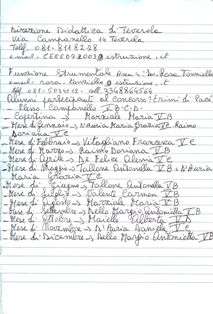 Direzione Didattica di Teverola
Via Campanello 14 Teverola
Telf. 081-8118228
e.mail. CEEE092003@istruzione.it
Funzione Strumentale Area 4: Ins. Rosa
e.mail: rosa. @istruzione.it
Alunni partecipanti al concorso: Crimi di Pace
Plesso Campanello V B-C-D-
- Copertina → Marziale Maria V B
- Mese di Gennaio → D'Auria Maria Grazia V C Raimo
Doriana V C
- Mese di Febbraio → Vitagliano Francesca V C
- Mese di Marzo → Raimo Doriana V B
- Mese di Aprile → De Felice Alessia V C
- Mese di Maggio → Tallone Antonella V B e D'Auria
Maria Grazia V C
- Mese di Giugno → Tallone Antonella V B
- Mese di Luglio → Valente Carmen V B
- Mese di Agosto → Marziale Maria V B
- Mese di Settembre → Dello Margio Antonietta V B
- Mese di Ottobre → Maiello Alberta V D
- Mese di Novembre → D'Auria Daniela V C
- Mese di Dicembre → Dello Margio Antonietta V B